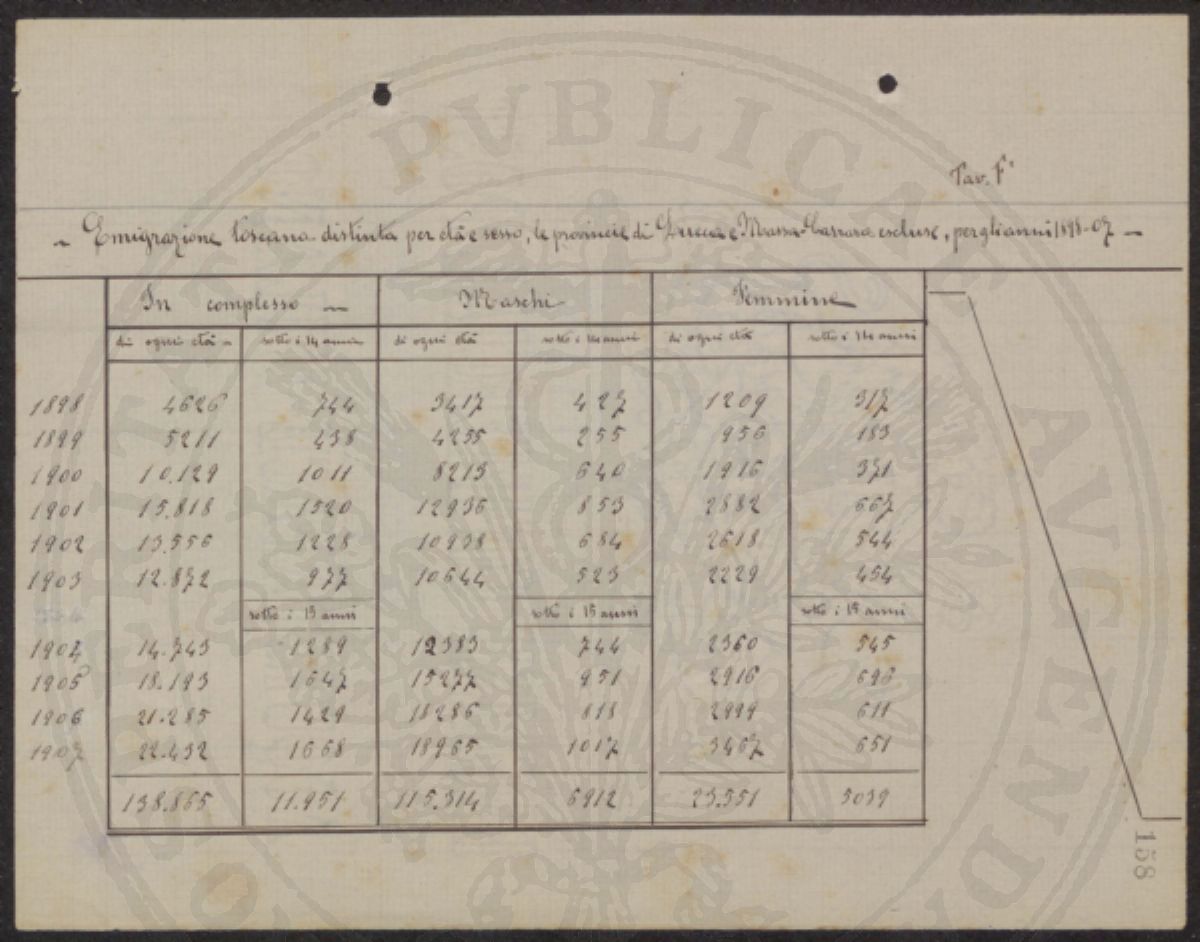 Tav. F'
~ Emigrazione toscana distinta per età e sesso, le provincie di Lucca e Massa-Carrara escluse, per gli anni 1898-07 —
In complesso ~ Maschi Femmine
di ogni età - sotto i 14 anni di ogni età sotto i 14 anni di ogni età sotto i 14 anni
1898 4626 744 3417 427 1209 317
1899 5211 438 4255 255 956 183
1900 10.129 1011 8213 640 1916 371
1901 15.818 1520 12936 853 2882 667
1902 13.556 1228 10938 684 2618 544
1903 12.872 977 10644 523 2229 454
sotto i 15 anni sotto i 15 anni sotto i 15 anni
1904 14.743 1289 12383 744 2360 545
1905 18.193 1647 15277 951 2916 696
1906 21.285 1429 18286 818 2999 611
1907 22.432 1668 18965 1017 3467 651
138.865 11.951 115.314 6912 23.551 5039
158